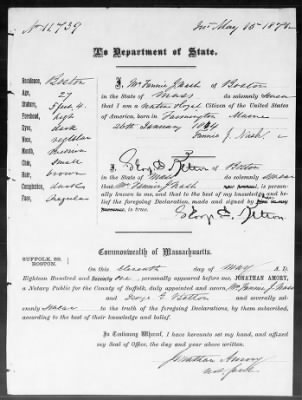 No 11739
May 15 1871
To Department of State.
Residence, Boston
Age, 27
Stature, 5 feet 4
Forehead, high
Eyes, dark
Nose, regular
Mouth, medium
Chin, small
Hair, brown
Complexion, dark
Face, regular
I, Mrs Fannie J Nash of Boston
in the State of Mass do solemnly swear
that I am a Citizen of the United States
of America, born in Farmington Maine
26th January 1844
Fannie J. Nash
I, of Boston
in the State of Mass do solemnly swear
that Mrs Fannie J Nash
is known to me, and that to the best of my knowledge and belief the foregoing Declaration, made and signed
is true.
Commonwealth of Massachusetts.
SUFFOLK, SS.
BOSTON.
On this eleventh day of May A. D.
Eighteen Hundred and Seventy one, personally appeared before me, JONATHAN AMORY,
a Notary Public for the County of Suffolk, duly appointed and sworn, Mrs Fannie J. Nash
and George and severally solemnly
to the truth of the foregoing Declarations, by them subscribed,
according to the best of their knowledge and belief.
In Testimony Whereof, I have hereunto set my hand, and affixed
my Seal of Office, the day and year above written.
Jonathan Amory
Not. Pub.